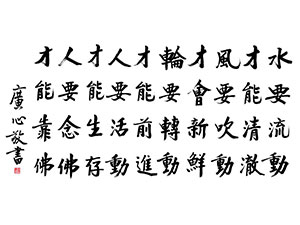 水要流動
才能清澈
風要吹動
才會新鮮
輪要轉動
才能前進
人要活動
才能生存
人要念佛
才能靠佛
廣心敬書